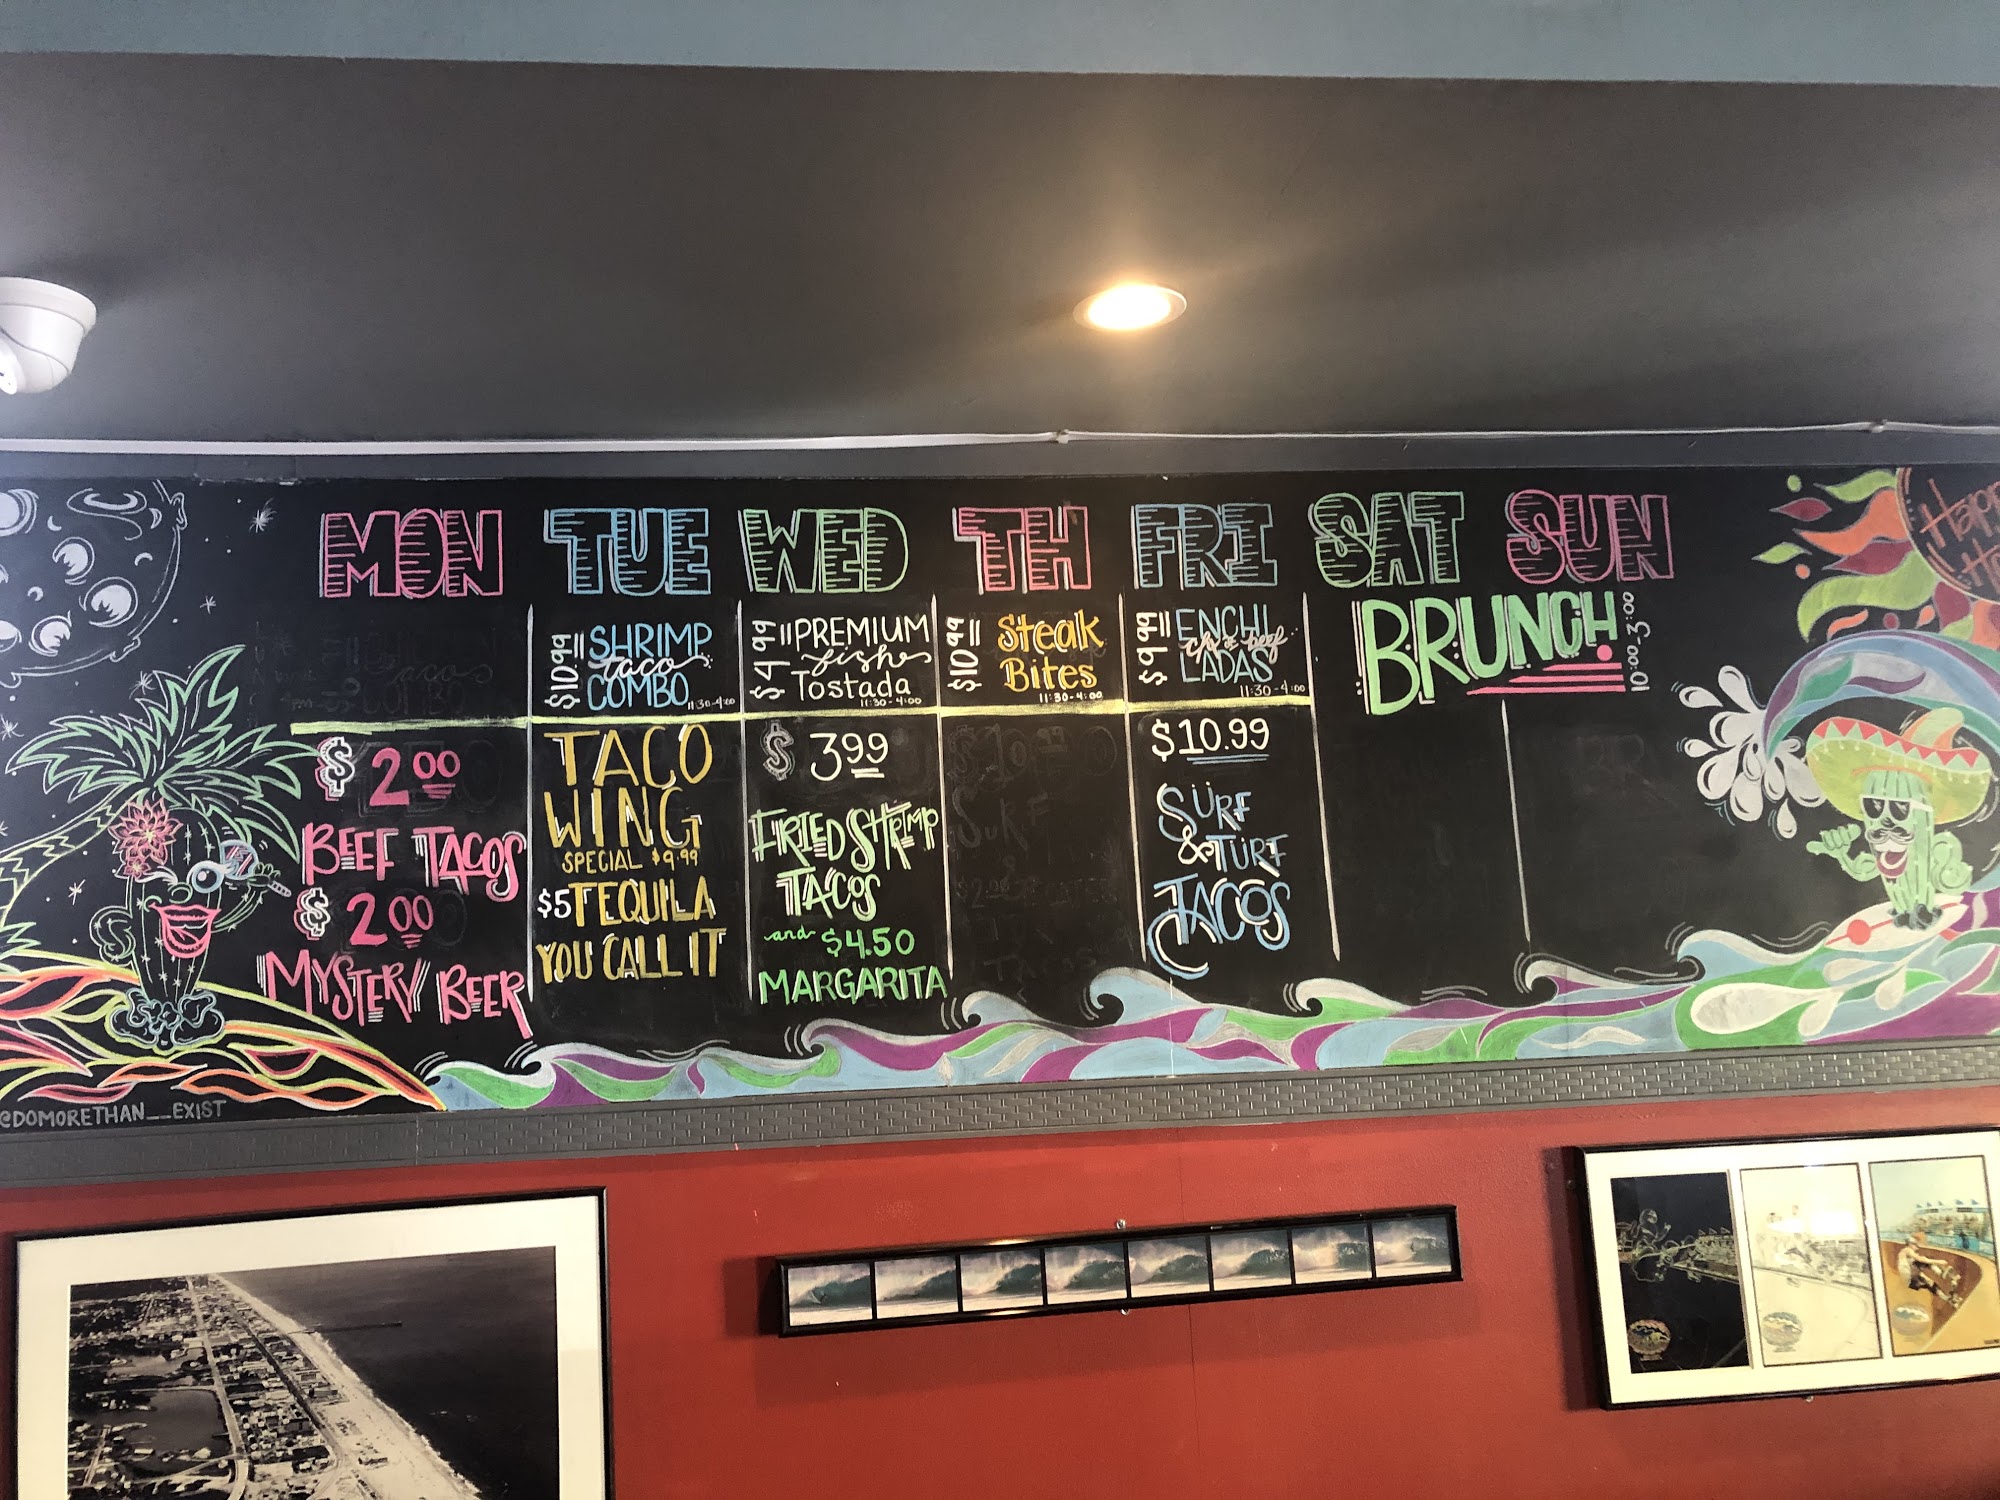 MON TUE WED TH FRI SAT SUN
$10.99 SHRIMP
taco
COMBO 11:30-4:00
$4.99 PREMIUM
fish
Tostada
11:30-4:00
$10.99 Steak
Bites
11:30-4:00
$9.99 ENCHI
chx or beef
LADAS
11:30-4:00
BRUNCH 10:00-3:00
$2.00
BEEF TACOS
$2.00
MYSTERY BEER
TACO
WING
SPECIAL $9.99
$5 TEQUILA
YOU CALL IT
$3.99
FRIED SHRIMP
TACOS
and $4.50
MARGARITA
$10.99
SURF
& TURF
TACOS
@DOMORETHAN__EXIST